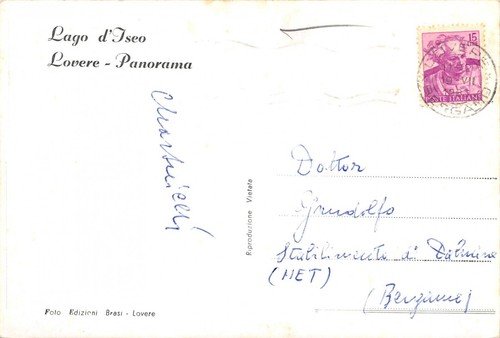 Lago d'Iseo
Lovere - Panorama
15
POSTE ITALIANE
BERGAMO
Riproduzione Vietata
Dottor
Grudolfo
Stabilimento di Dalmine
(MET)
(Bergamo)
Foto Edizioni Brasi - Lovere